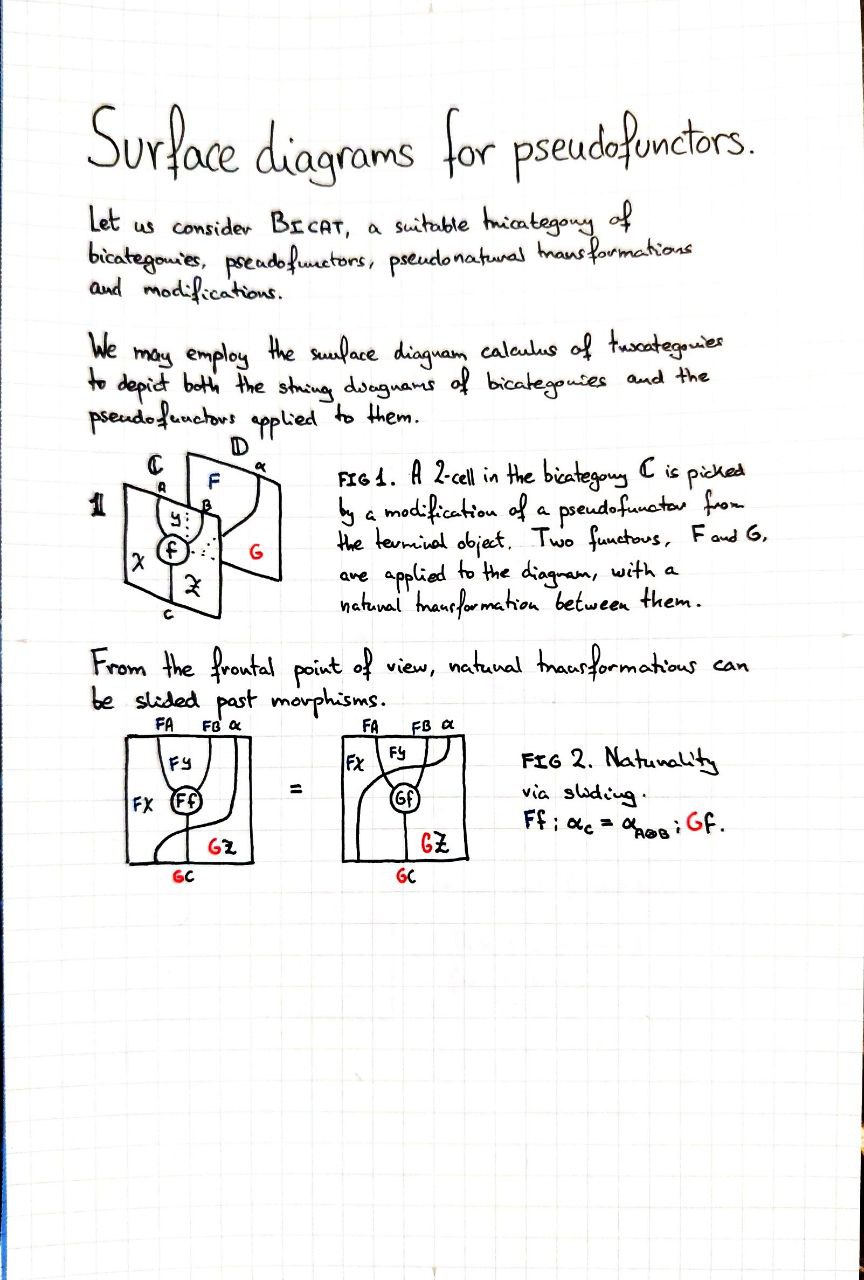 Surface diagrams for pseudofunctors.
Let us consider BICAT, a suitable tricategory of
bicategories, pseudofunctors, pseudonatural transformations
and modifications.
We may employ the surface diagram calculus of tricategories
to depict both the string diagrams of bicategories and the
pseudofunctors applied to them.
ℂ 𝔻
A F α
𝟙 B
y
f G
X Z
C
FIG 1. A 2-cell in the bicategory ℂ is picked
by a modification of a pseudofunctor from
the terminal object. Two functors, F and G,
are applied to the diagram, with a
natural transformation between them.
From the frontal point of view, natural transformations can
be slided past morphisms.
FA FB α
Fy
FX Ff
GZ
GC
=
FA FB α
FX Fy
Gf
GZ
GC
FIG 2. Naturality
via sliding.
Ff ; α_C = α_{A⊗B} ; Gf.